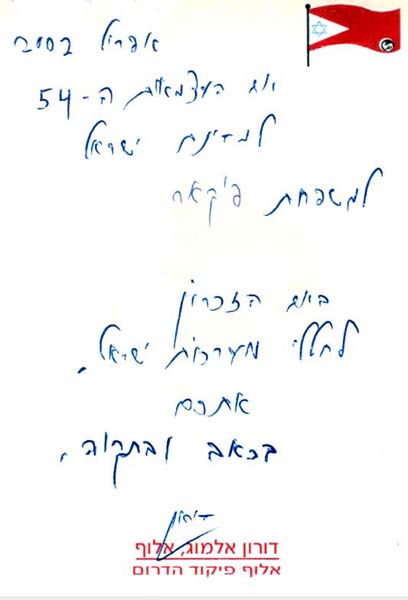 אפריל 2002
יום העצמאות ה-54
למדינת ישראל
למשפחת פיקאר
ביום הזכרון
לחללי מערכות ישראל.
אתכם
בכאב ובתקוה.
דורון
דורון אלמוג, אלוף
אלוף פיקוד הדרום